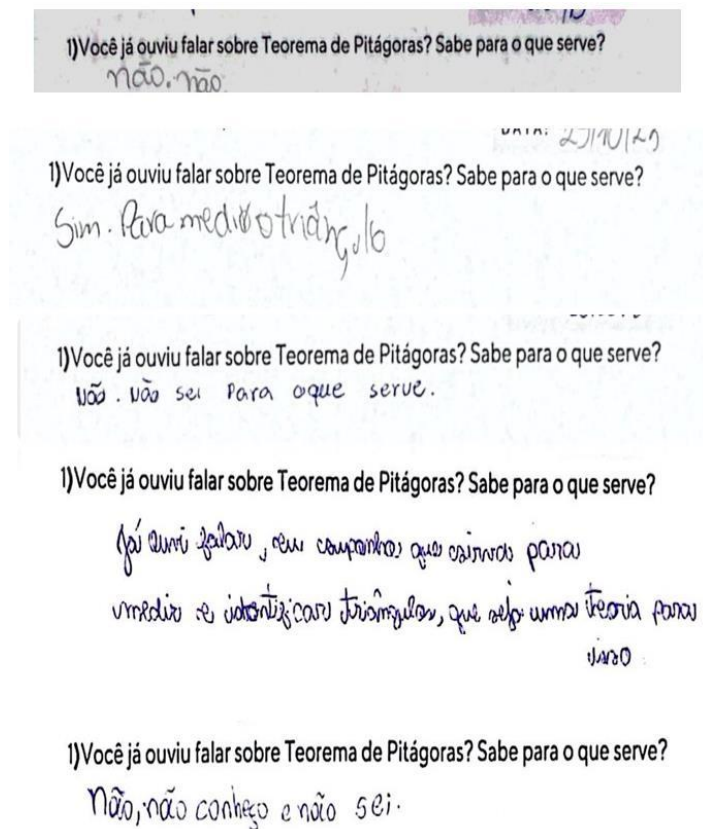 1)Você já ouviu falar sobre Teorema de Pitágoras? Sabe para o que serve?
não. não
1)Você já ouviu falar sobre Teorema de Pitágoras? Sabe para o que serve?
Sim. Para medir o triângulo
1)Você já ouviu falar sobre Teorema de Pitágoras? Sabe para o que serve?
Não. Não sei para oque serve.
1)Você já ouviu falar sobre Teorema de Pitágoras? Sabe para o que serve?
Já ouvi falar, eu que para
medir e triângulos, que seja uma teoria para
isso
1)Você já ouviu falar sobre Teorema de Pitágoras? Sabe para o que serve?
Não, não conheço e não sei.